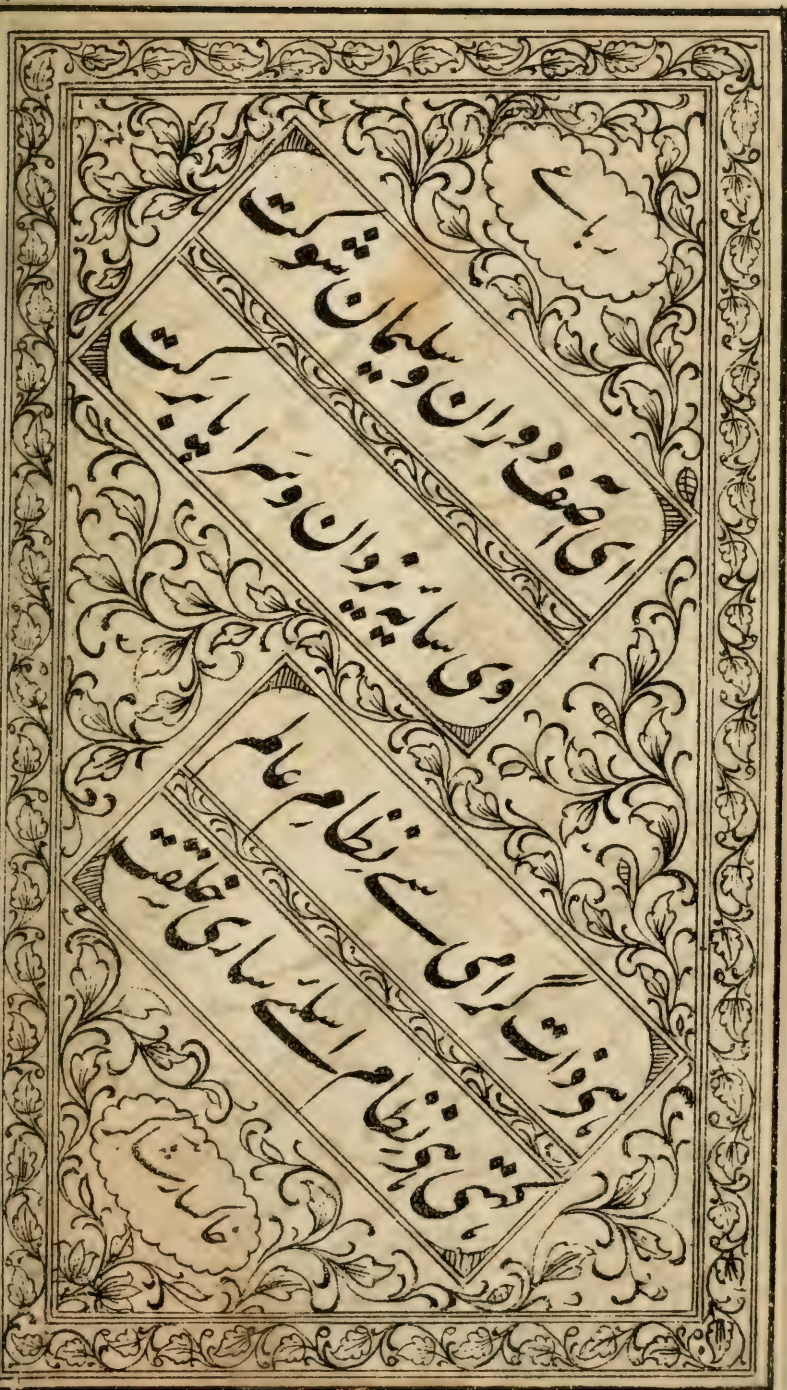 رباعے
ای آصف دوران و سلیمان شوکت
وی سایۂ یزدان و سراپا برکت
ہی ذات گرامی سے نظام عالم
کہتی ہی نظام اسلئے ساری خلقت
خاکسار